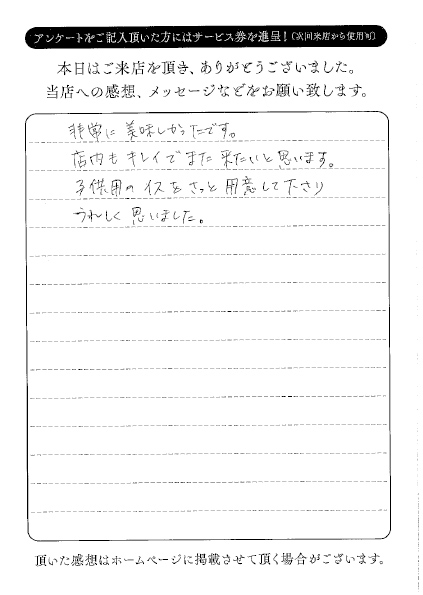 アンケートをご記入頂いた方にはサービス券を進呈！（次回来店から使用可）
本日はご来店を頂き、ありがとうございました。
当店への感想、メッセージなどをお願い致します。
非常に美味しかったです。
店内もキレイでまた来たいと思います。
子供用のイスをさっと用意して下さり
うれしく思いました。
頂いた感想はホームページに掲載させて頂く場合がございます。